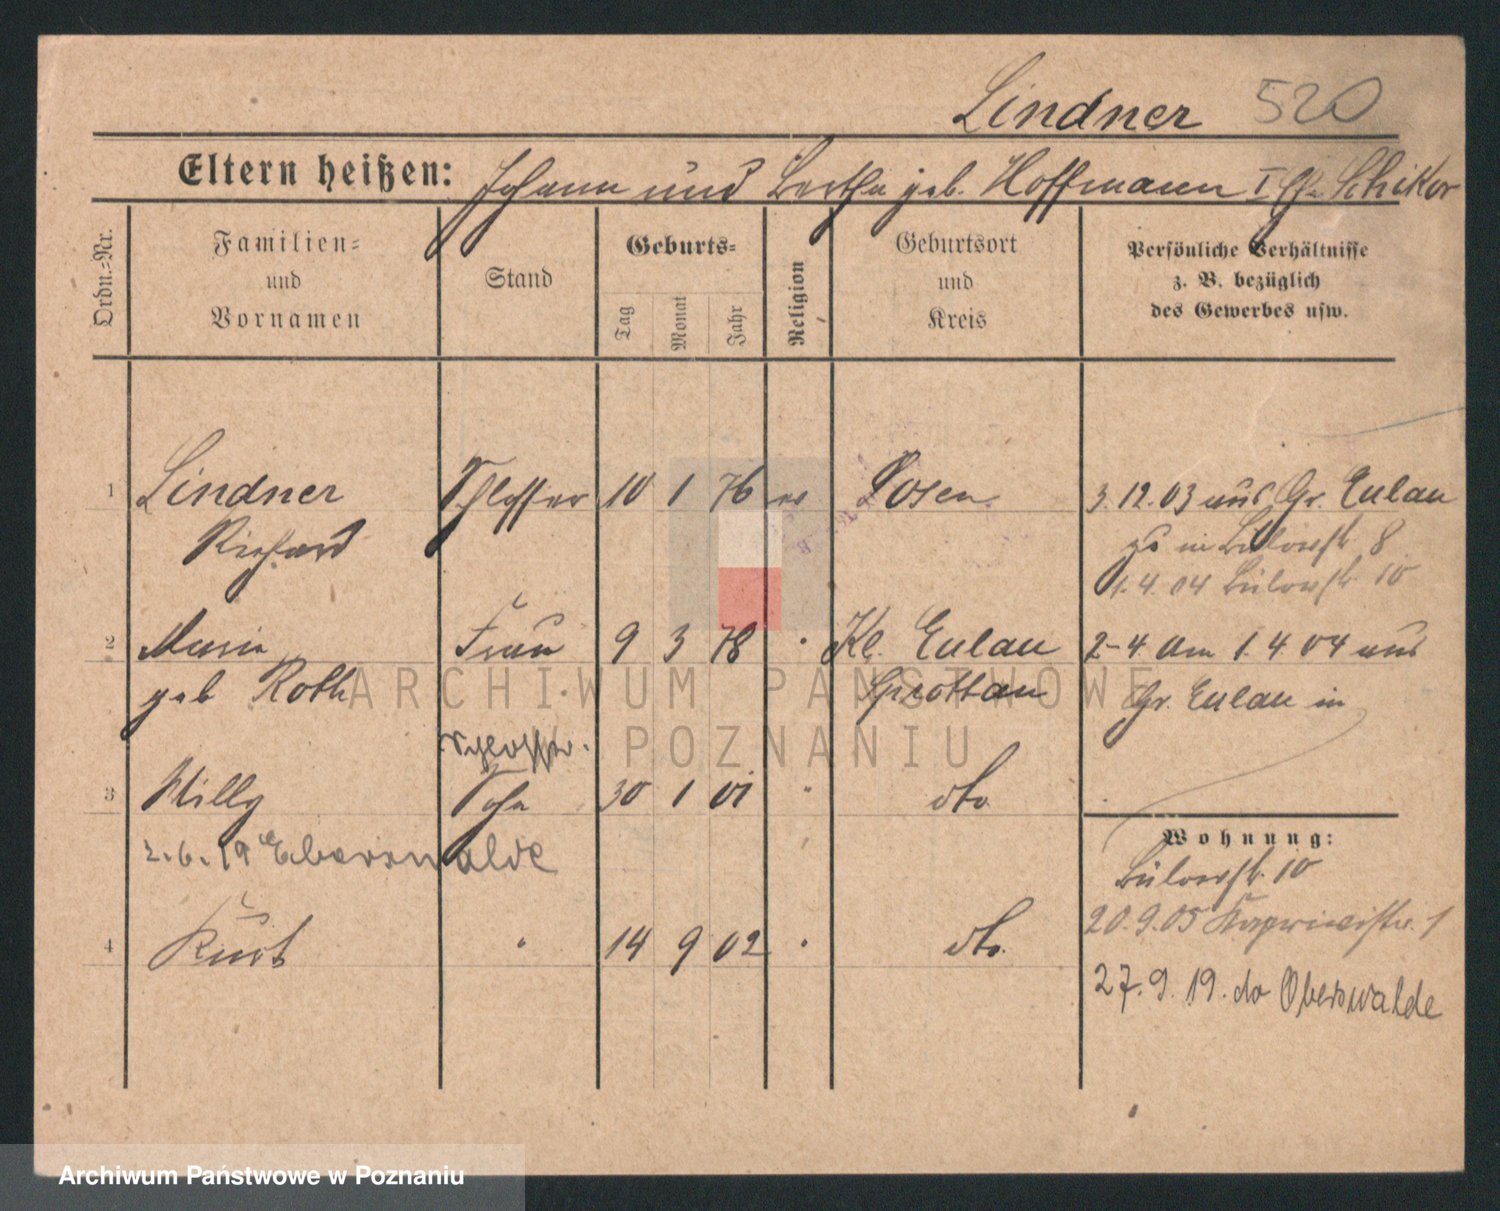 Lindner 520
Eltern heißen: Johann und Bertha geb. Hoffmann
Ordn.=Nr. Familien= und Vornamen Stand Geburts= Tag Monat Jahr Religion Geburtsort und Kreis Persönliche Verhältnisse z. B. bezüglich des Gewerbes usw.
1 Lindner Schlosser 10 1 76 ev Posen 3.12.03 aus Gr. Eulau
Richard zu in Bülowstr. 8
1.4.04 Bülowstr. 10
2 Maria Frau 9 3 78 " Kl. Eulau 2-4 am 1.4 04 aus
geb Roth Sprottau Gr. Eulau in
Schlosser.
3 Willy Sohn 30 1 01 " dto
Wohnung:
2.6.19 Eberswalde Bülowstr. 10
20.9.05
4 Kurt " 14 9 02 " dto.
27.9.19. do Eberswalde
ARCHIWUM PAŃSTWOWE
W POZNANIU
Archiwum Państwowe w Poznaniu